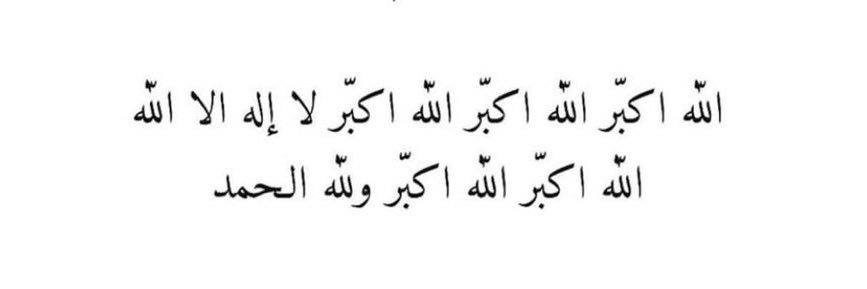 الله اكبّر الله اكبّر الله اكبّر لا إله الا الله
الله اكبّر الله اكبّر ولله الحمد